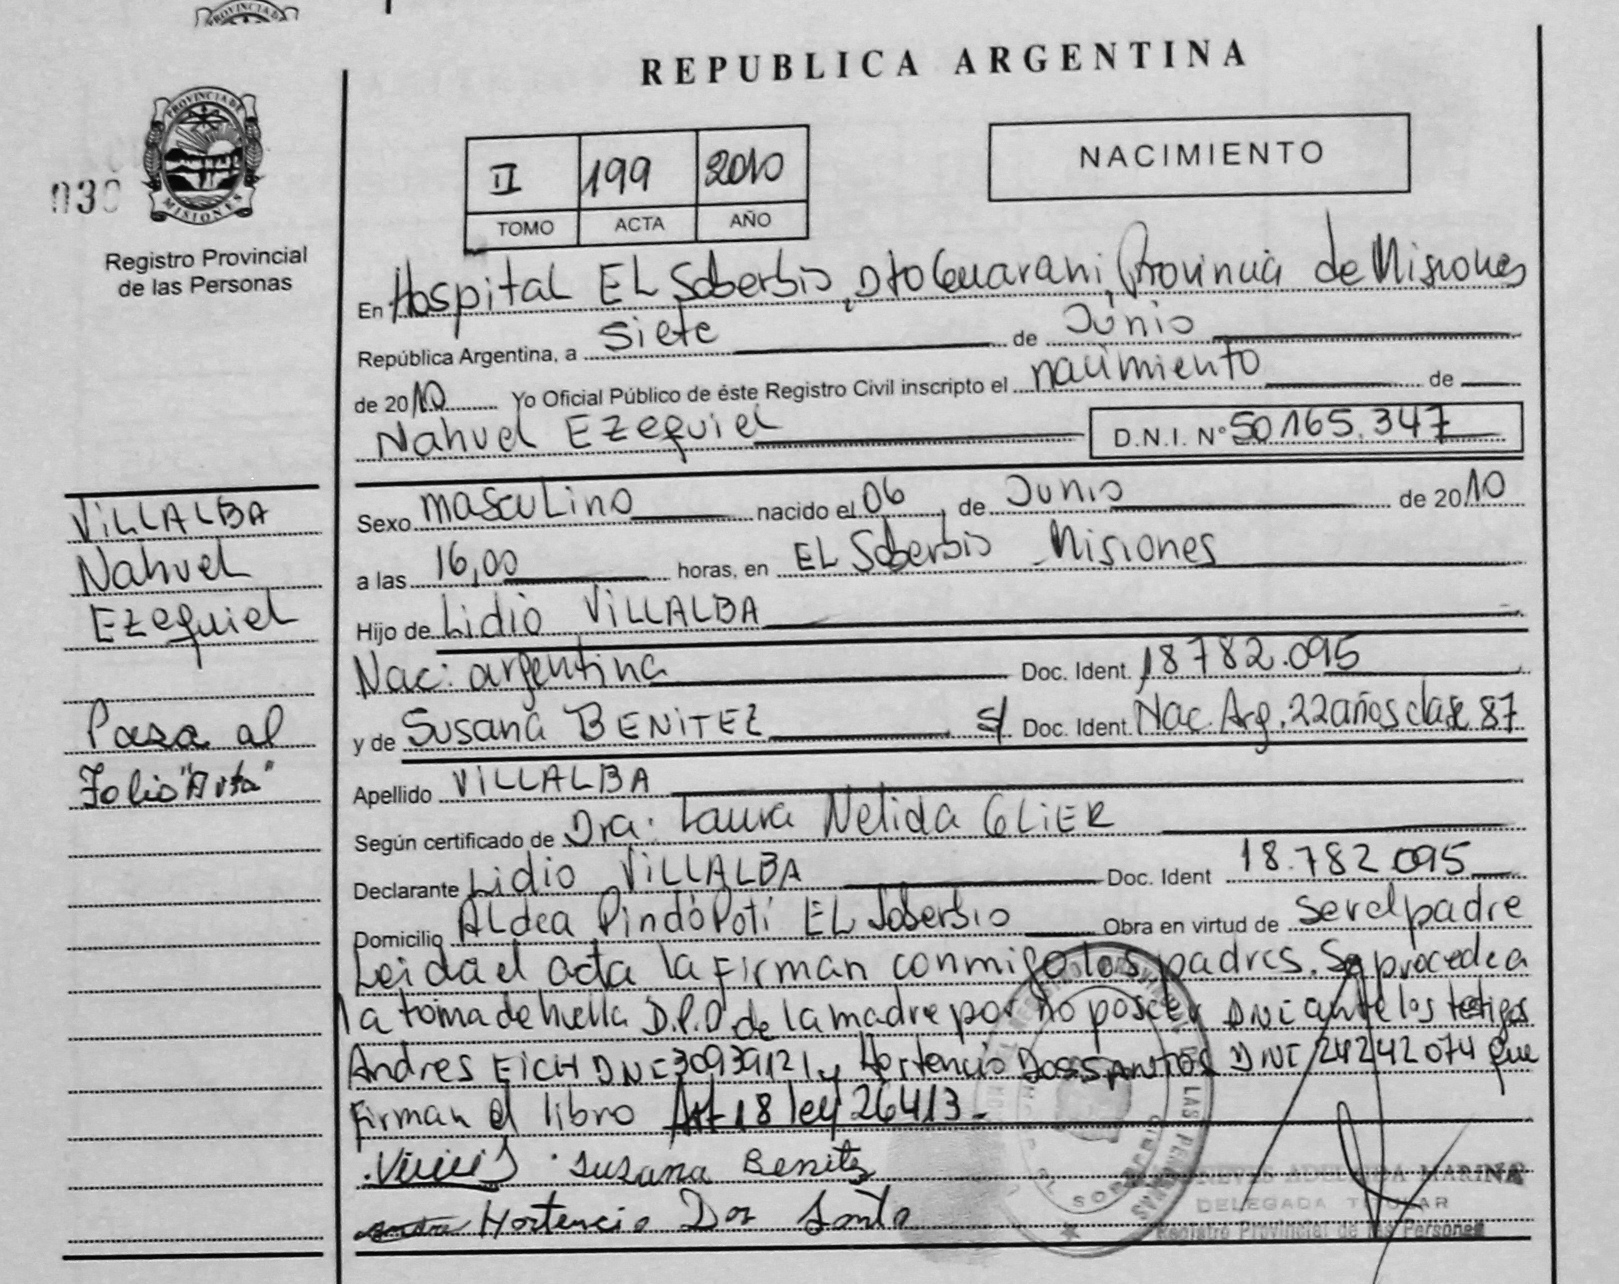 PROVINCIA DE
REPUBLICA ARGENTINA
PROVINCIA DE
MISIONES
030
Registro Provincial
de las Personas
II 199 2010
TOMO ACTA AÑO
NACIMIENTO
En Hospital EL Soberbio, Dto Guarani, Provincia de Misiones
República Argentina, a siete de Junio
de 2010 Yo Oficial Público de éste Registro Civil inscripto el nacimiento de
Nahuel Ezequiel D.N.I. N° 50165.347
VILLALBA
Nahuel
Ezequiel
Pasa al
Folio "Avta"
Sexo masculino nacido el 06 de Junio de 2010
a las 16,00 horas, en EL Soberbio Misiones
Hijo de Lidio VILLALBA
Nac: argentina Doc. Ident. 18782.095
y de Susana BENITEZ s/ Doc. Ident. Nac. Arg. 22 años clase 87
Apellido VILLALBA
Según certificado de Dra: Laura Nelida GLIER
Declarante Lidio VILLALBA Doc. Ident 18.782 095
Domicilio Aldea Pindó Poti EL Soberbio Obra en virtud de ser el padre
Leida el acta la firman conmigo los padres. Se procede a
la toma de huella D.P.D de la madre por no poseer DNI ante los testigos
Andres EICH DNI 30939121 y Hortencio DOSSANTOS DNI 24242074 que
firman el libro Art 18 ley 26413-
Susana Benitez
Hortencio Dos Santo
NIEVES ADELAIDA MARINA
DELEGADA TITULAR
Registro Provincial de las Personas